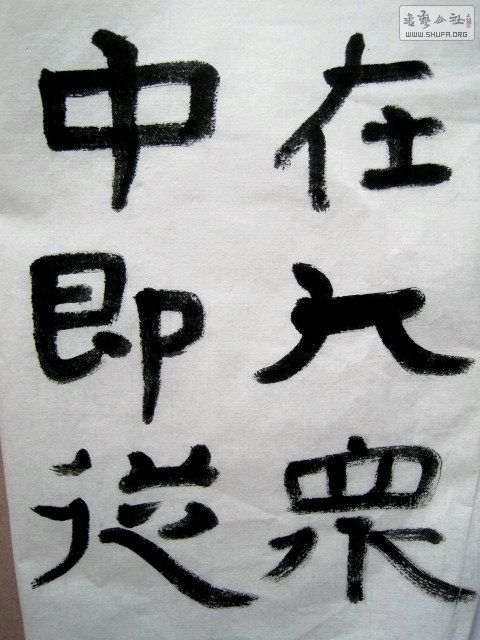 在大衆
中即從
書藝公社
WWW.SHUFA.ORG